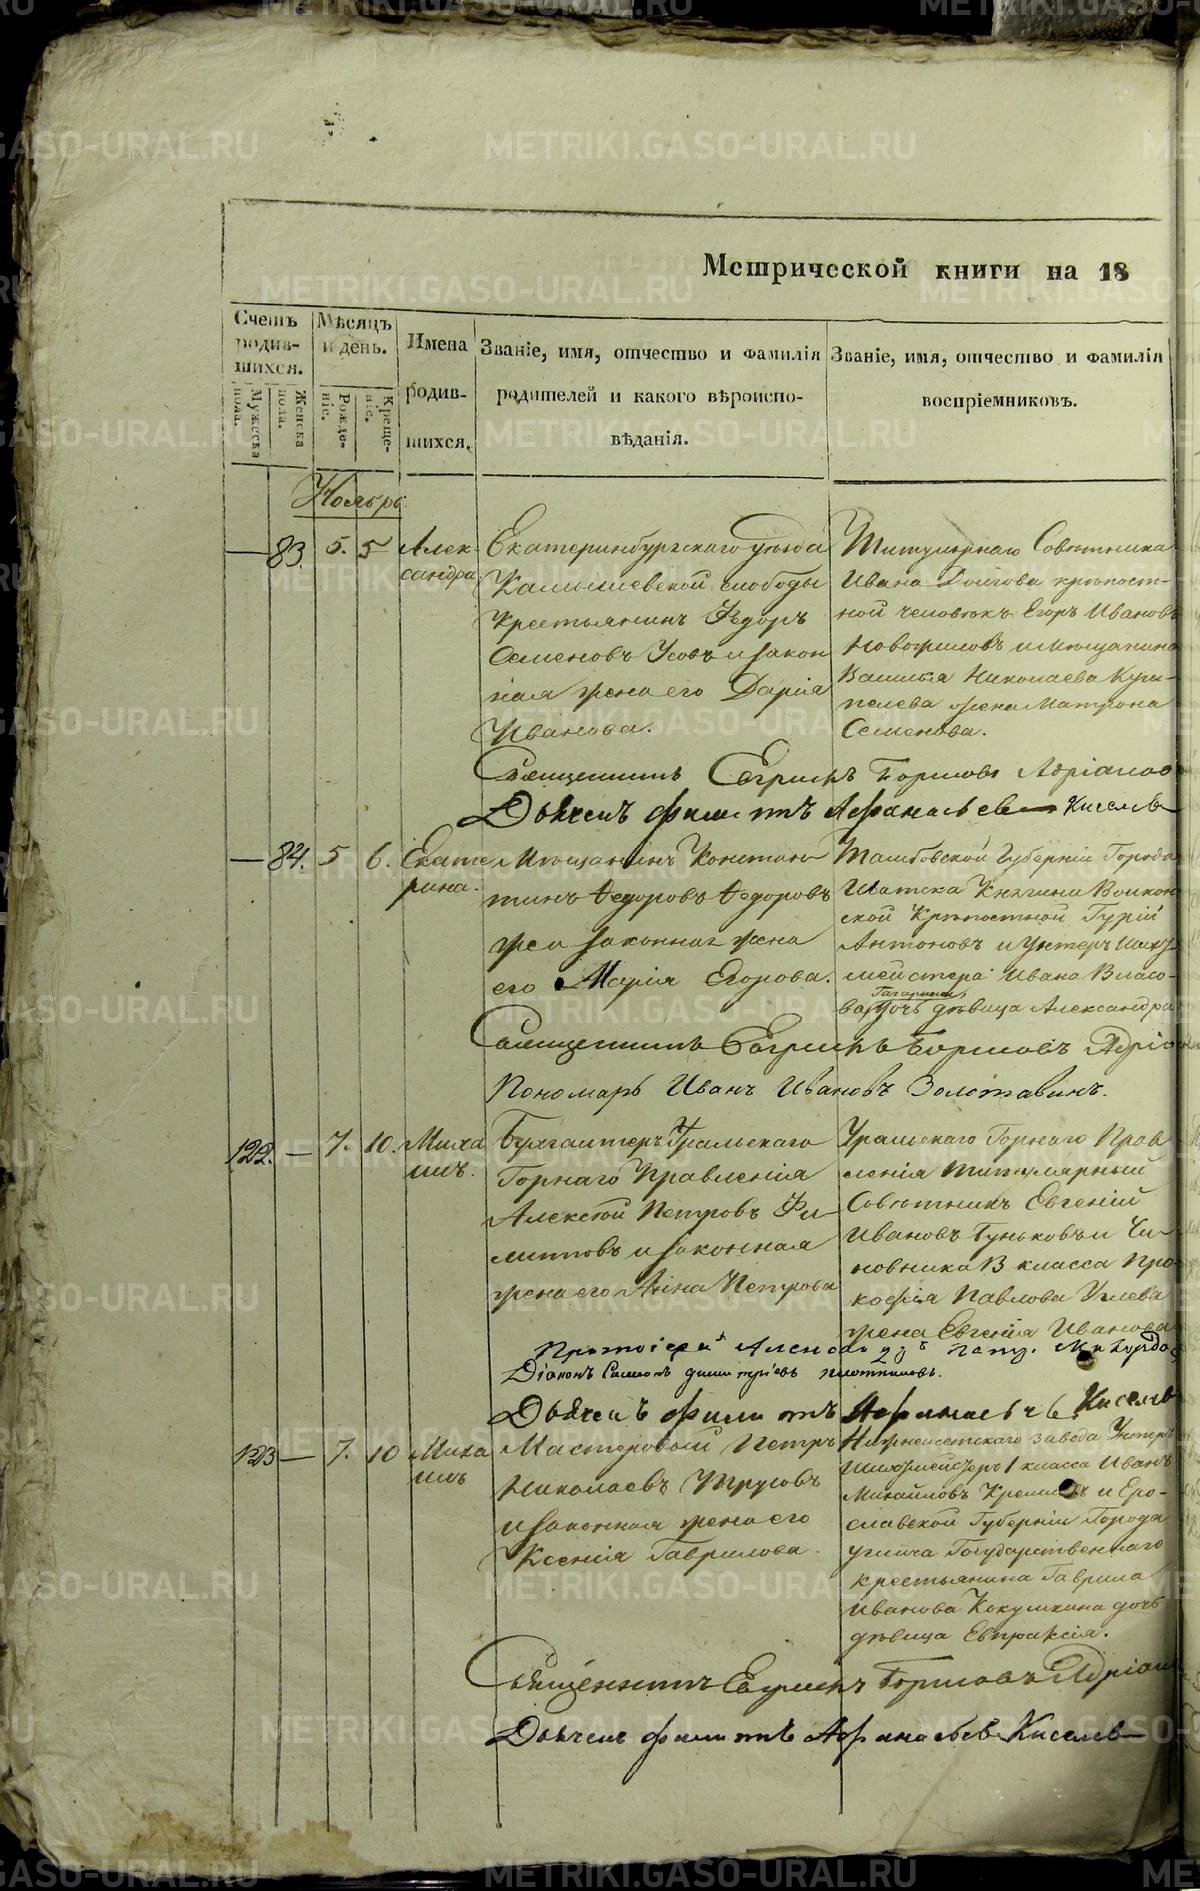 Метрической книги на 18
Счетъ родившихся.
Мужеска пола.
Женска пола.
Мѣсяцъ и день.
Рожденіе.
Крещеніе.
Имена родившихся.
Званіе, имя, отчество и фамилія родителей и какого вѣроисповѣданія.
Званіе, имя, отчество и фамилія воспріемниковъ.
Ноябрь
— 83. 5. 5
Александра
Екатеринбургскаго уѣзда
Камышевской слободы
Крестьянинъ Ѳедоръ
Семеновъ Усовъ и закон
ная жена его Дарія
Иванова.
Титулярнаго Совѣтника
Ивана крѣпост-
ной человѣкъ Егоръ Ивановъ
и мѣщанина
Василья Николаева
жена Матрона
Семенова.
Священникъ Адріанов
Дьячекъ Филиппъ Афанасьевъ Киселевъ
— 84. 5 6.
Екате
рина.
Мѣщанинъ Констан
тинъ Ѳедоровъ Ѳедоровъ
же и законная жена
его Марія Егорова.
Тамбовской Губерніи Города
Шатска Княгини Волкон
ской Крѣпостной Гурій
Антоновъ и Унтеръ Шихт
мейстера Ивана Власо-
Гагарина
ва дочь дѣвица Александра
Священникъ
Пономарь Иванъ Ивановъ Золотавинъ.
122. — 7. 10.
Миха
илъ.
Бухгалтеръ Уральскаго
Горнаго Правленія
Алексѣй Петровъ Фи
липповъ и законная
жена его Анна Петрова
Уральскаго Горнаго Прав
ленія Титулярный
Совѣтникъ Евгеній
Ивановъ Гуньковъ и Чи-
новника 13 класса Про
кофія Павлова Углева
жена Евгенія Иванова
Протоіерей
Діаконъ Симеонъ Димитріевъ Плотниковъ.
Дьячекъ Филиппъ Афанасьевъ Киселевъ
123 — 7. 10
Миха
илъ
Мастеровой Петръ
Николаевъ Трусовъ
и законная жена его
Ксенія Гаврилова.
Нижнеисетскаго завода Унтеръ
Шихтмейстеръ 1 класса Иванъ
Михайловъ и Еро-
славской Губерніи Города
Углича Государственнаго
крестьянина Гаврила
Иванова Кокушкина дочь
дѣвица Евпраксія.
Священникъ
Дьячекъ Филиппъ Афанасьевъ Киселевъ
METRIKI.GASO-URAL.RU